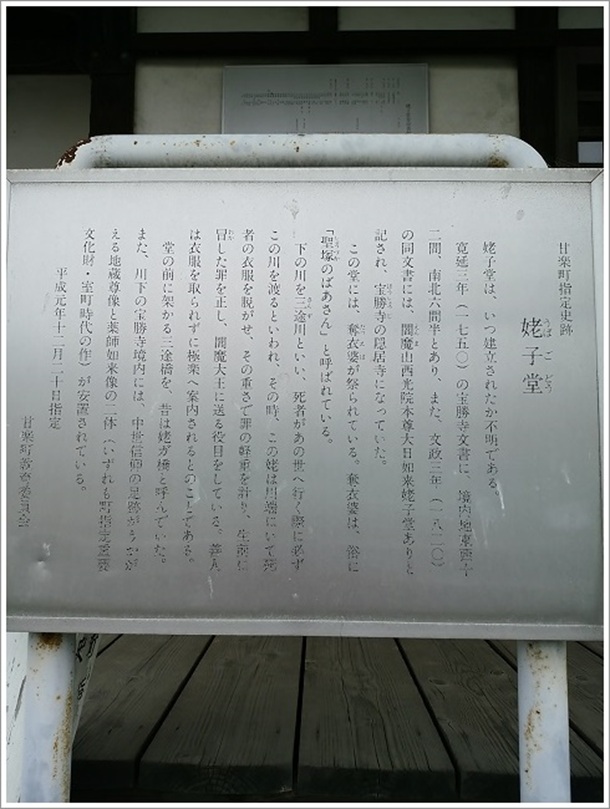 甘楽町指定史跡
姥子堂
うばごどう
姥子堂は、いつ建立されたか不明である。
寛延三年（一七五〇）の宝勝寺文書に、境内地東西十
二間、南北六間半とあり、また、文政三年（一八二〇）
の同文書には、閻魔山西光院本尊大日如来姥子堂ありと
記され、宝勝寺の隠居寺になっていた。
この堂には、奪衣婆が祭られている。奪衣婆は、俗に
「聖塚のばあさん」と呼ばれている。
下の川を三途川といい、死者があの世へ行く際に必ず
この川を渡るといわれ、その時、この姥は川端にいて死
者の衣服を脱がせ、その重さで罪の軽重を計り、生前に
冒した罪を正し、閻魔大王に送る役目をしている。善人
は衣服を取られずに極楽へ案内されるとのことである。
堂の前に架かる三途橋を、昔は姥ガ橋と呼んでいた。
また、川下の宝勝寺境内には、中世信仰の足跡がうかが
える地蔵尊像と薬師如来像の二体（いずれも町指定重要
文化財・室町時代の作）が安置されている。
平成元年十二月二十日指定
甘楽町教育委員会